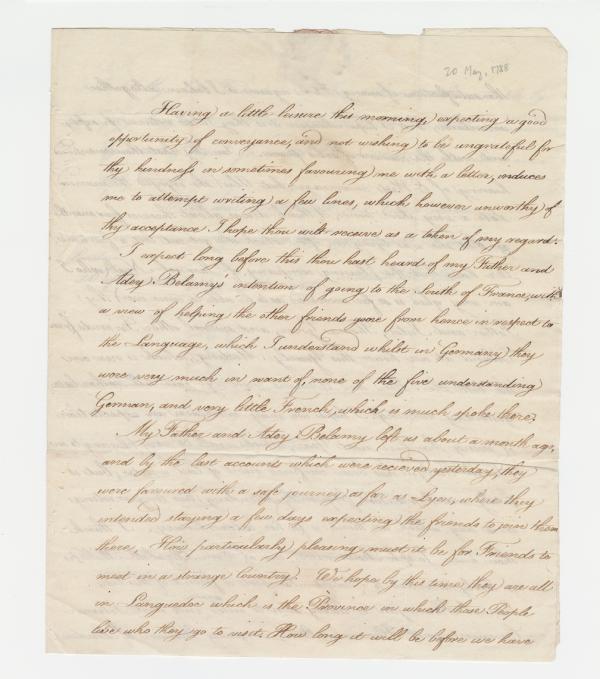 20 May, 1788
Having a little leisure this morning, expecting a good
opportunity of conveyance, and not wishing to be ungrateful for
thy kindness in sometimes favouring me with a letter, induces
me to attempt writing a few lines, which however unworthy of
thy acceptance I hope thou wilt receive as a token of my regard.
I expect long before this thou hast heard of my Father and
Adey Belamy's intention of going to the South of France, with
a view of helping the other friends gone from hence in respect to
the Language, which I understand whilst in Germany they
were very much in want of, none of the five understanding
German, and very little French, which is much spoke there.
My Father and Adey Belamy left us about a month ago,
and by the last accounts which were recieved yesterday, they
were favoured with a safe journey as far as Lyon, where they
intended staying a few days expecting the friends to join them
there. How particularly pleasing must it be for Friends to
meet in a strange Country. We hope by this time they are all
in Languedoc which is the Province in which those People
live who they go to visit. How long it will be before we have